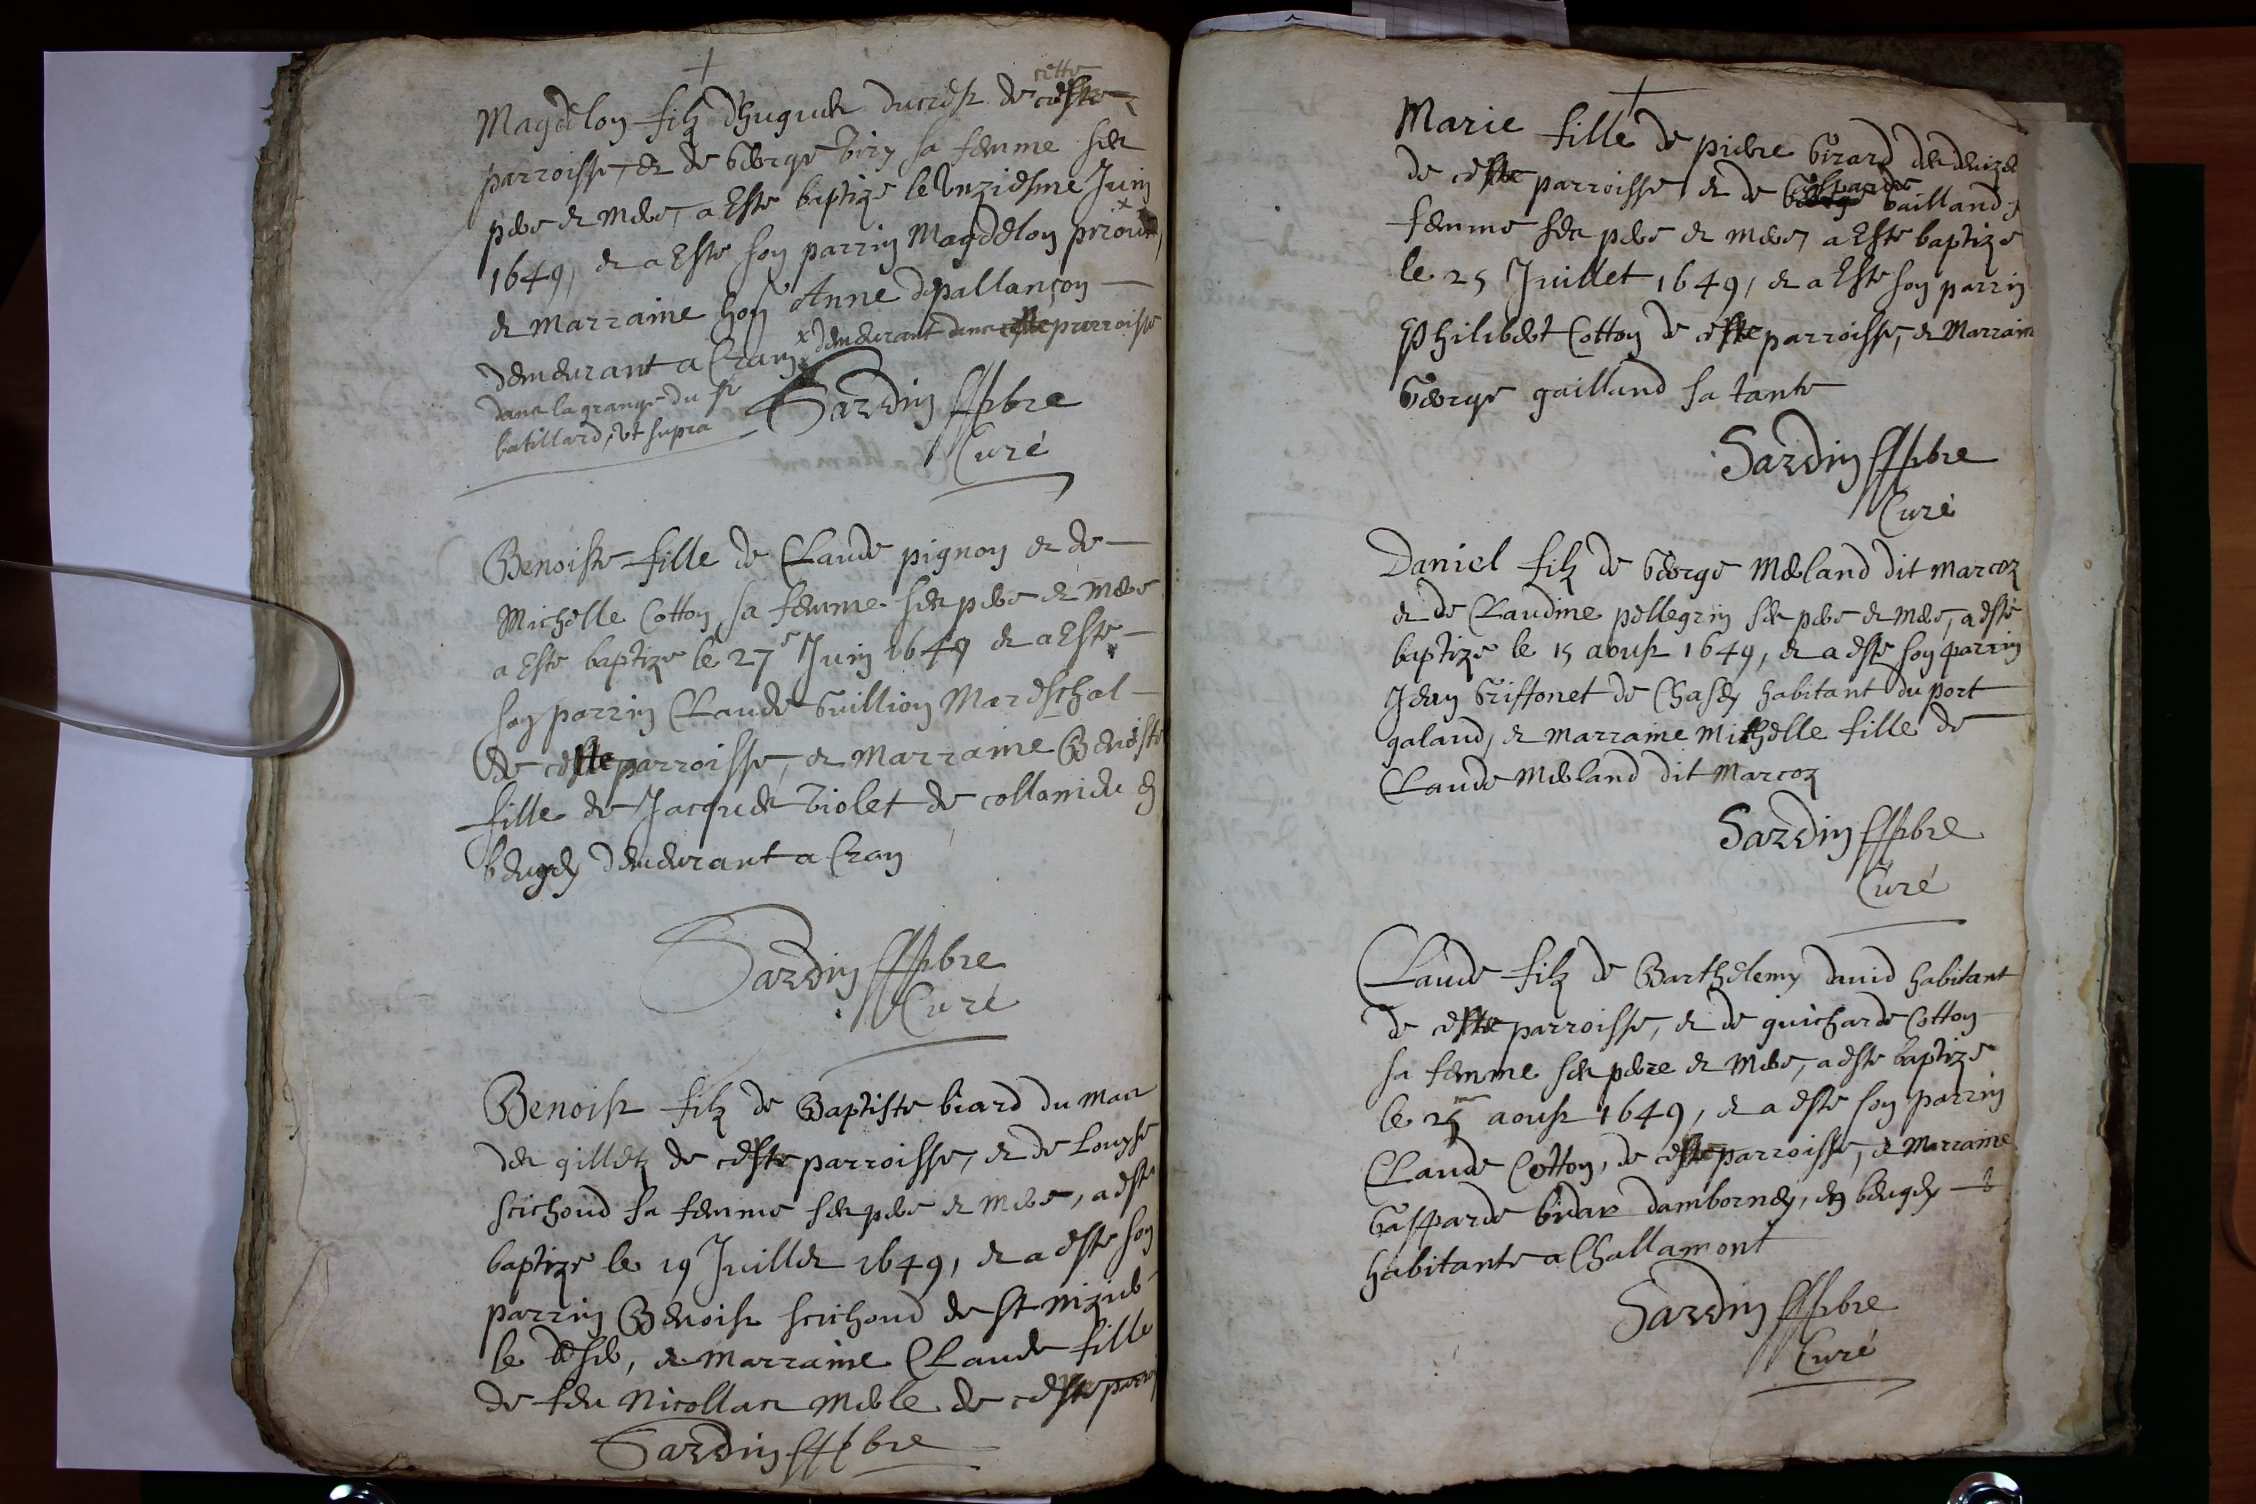 Magdelon filz d'hugues ducrest de ceste
cette
parroisse, et de George Viry sa femme ses
pere et mere, a Este baptize le Unziesme Juin
1649, et a Este son parrin Magdelon
et marraine hon Anne de pallançon
demeurant a Cran x demeurant dans ceste parroisse
dans la grange du sr
batillard, ut supra
Sardin pbre
Curé
Benoiste fille de Claude pignon et de
Michelle Cotton sa femme ses pere et mere
a Este baptize le 27e Juin 1649 et a Este
son parrin Claude Guillion Mareschal
de ceste parroisse, et Marraine Benoiste
fille de Jacques Violet de collonieu en
beugey demeurant a Cran
Sardin pbre
Curé
Benoist filz de Baptiste biard du mas
des gilletz de ceste parroisse, et de Louyse
scichoud sa femme ses pere et mere, a este
baptize le 19 Juillet 1649, et a este son
parrin Benoist scichoud de st nizier
le desert, et marraine Claude fille
de feu Nicollas Merle de ceste parroi
Sardin pbre
Marie fille de pierre Girard
de ceste parroisse et de Gasparde Gailland sa
femme ses pere et mere, a Este baptize
le 25 Juillet 1649, et a Este son parrin
Philibert Cotton de ceste parroisse, et Marraine
George gailland sa tante
Sardin pbre
Curé
Daniel filz de George Merland dit marcoz
et de Claudine pellegrin ses pere et mere, a esté
baptize le 15 aoust 1649, et a este son parrin
Jean Griffonet de Chasey habitant du port
galand, et marraine Michelle fille de
Claude Merland dit Marcoz
Sardin pbre
Curé
Claude filz de Barthelemy david habitant
de ceste parroisse, et de guicharde Cotton
sa femme ses pere et Mere, a este baptize
le 25me aoust 1649, et a este son parrin
Claude Cotton, de ceste parroisse, et Marraine
Gasparde damborney, en beugey
habitante a Challamont
Sardin pbre
Curé